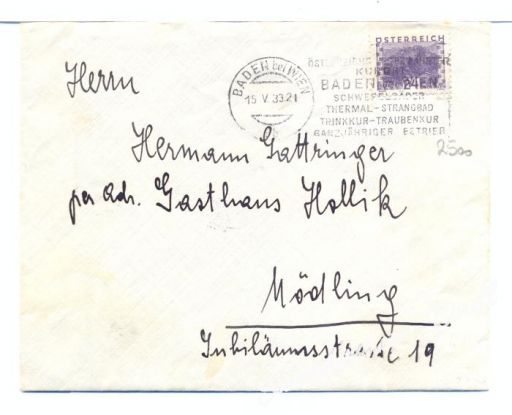 ÖSTERREICH
24
BADEN bei WIEN
15 V. 33. 21
KURORT
BADEN WIEN
SCHWEFELBÄDER
THERMAL-STRANDBAD
TRINKKUR-TRAUBENKUR
GANZJÄHRIGER BETRIEB
2500
Herrn
Hermann Gattringer
per Adr. Gasthaus Hollik
Mödling
Jubiläumsstrasse 19